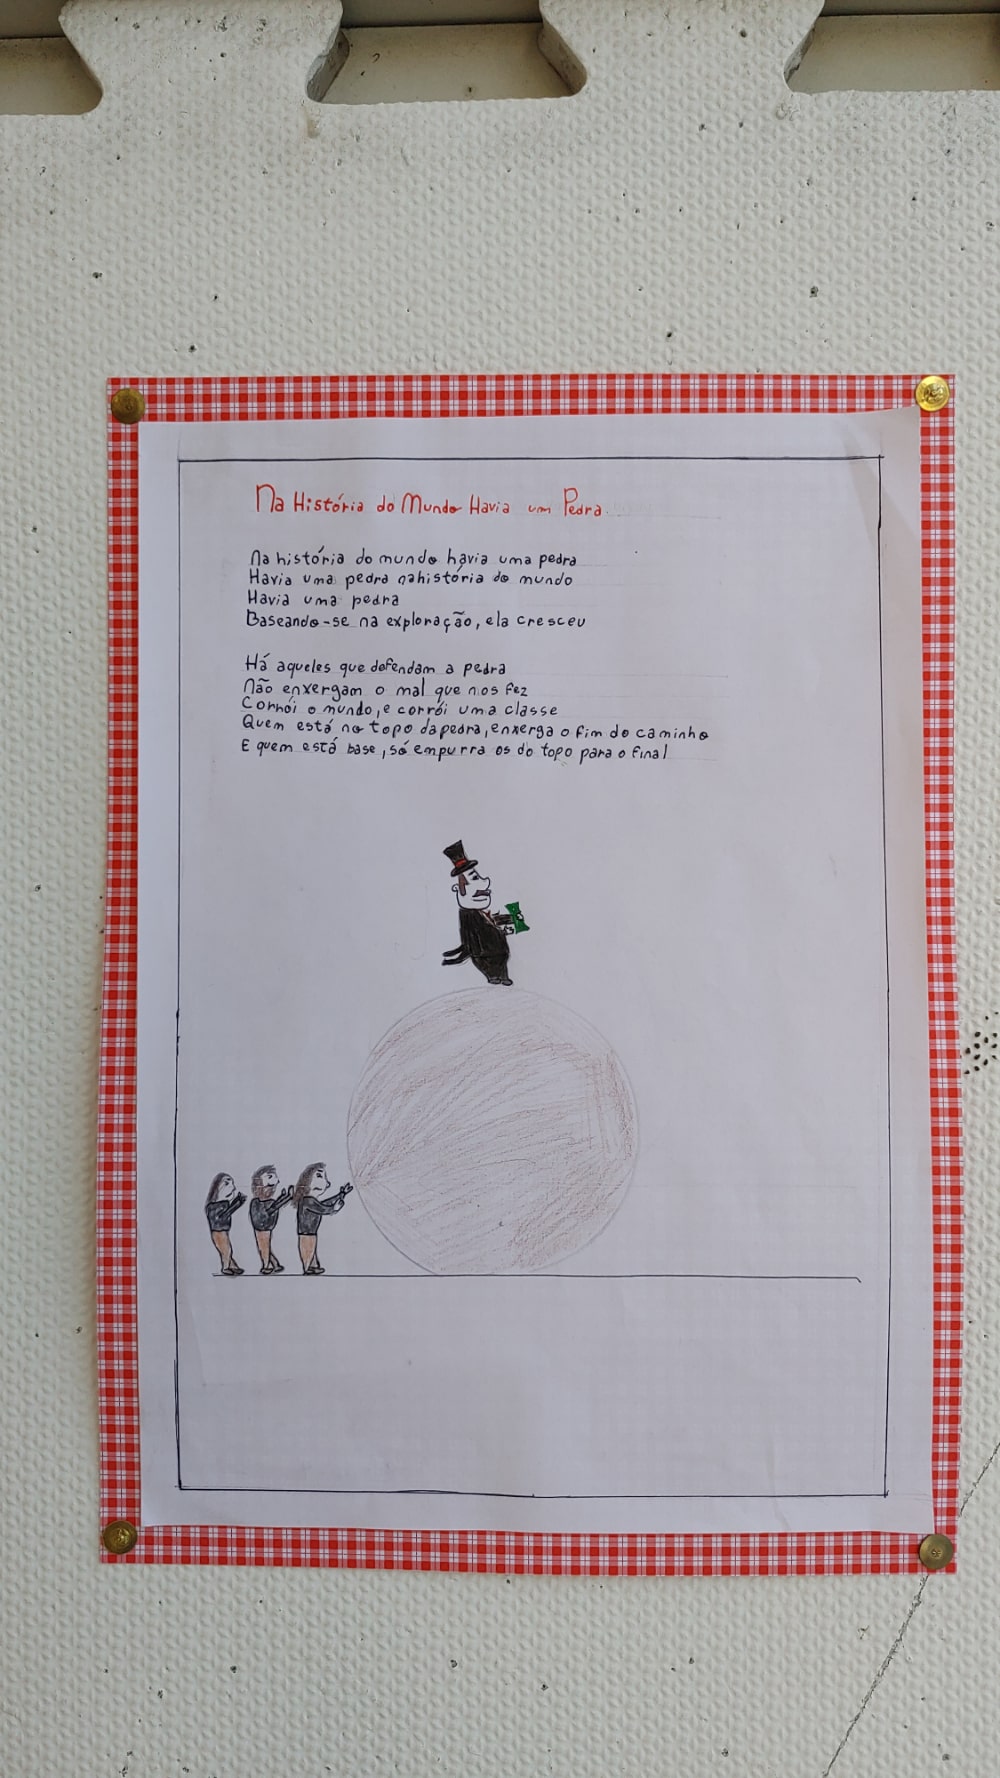 Na História do Mundo Havia um Pedra
Na história do mundo havia uma pedra
Havia uma pedra nahistória do mundo
Havia uma pedra
Baseando-se na exploração, ela cresceu
Há aqueles que defendam a pedra
Não enxergam o mal que nos fez
Corrói o mundo, e corrói uma classe
Quem está no topo dapedra, enxerga o fim do caminho
E quem está base, só empurra os do topo para o final